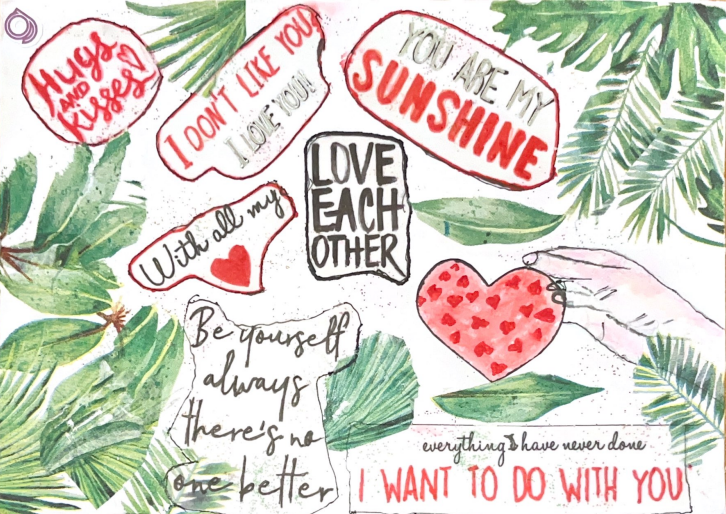 Hugs
AND
Kisses
I DON'T LIKE YOU!
I LOVE YOU!!
YOU ARE MY
SUNSHINE
With all my
LOVE
EACH
OTHER
Be yourself
always
there's no
one better
everything I have never done
I WANT TO DO WITH YOU